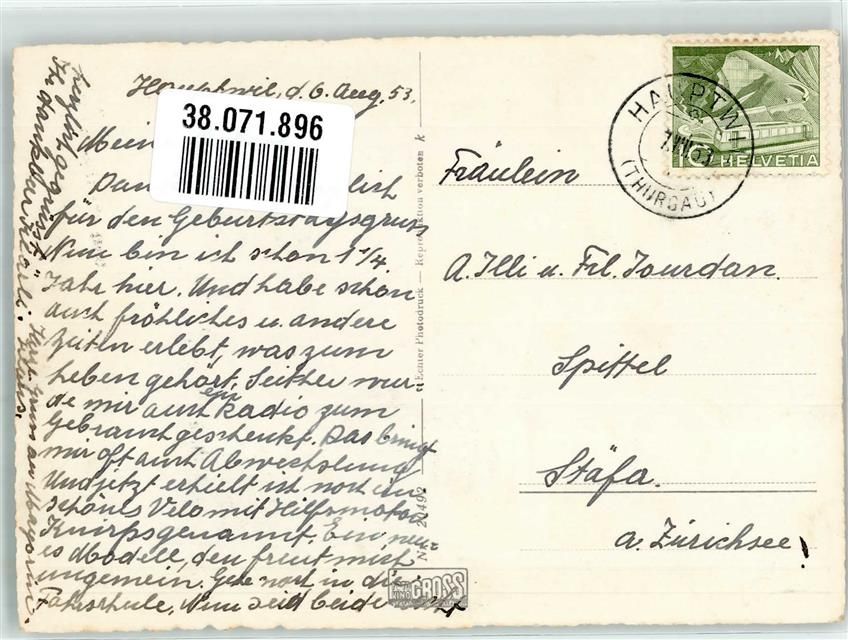 Hauptwil, d. 6. Aug. 53.
38.071.896
Mein
Dan lich
für den Geburtstagsgruss
Nun bin ich schon 1 1/4
Jahr hier. Und habe schon
auch fröhliches u. andere
Zeiten erlebt, was zum
Leben gehört. Seither wur-
de mir auch ein Radio zum
Gebrauch geschenkt. Das bringt
mir oft auch Abwechslung
Und jetzt erhielt ich noch ein
schönes Velo mit Hilfsmotor
Knirps genannt. Ein neu-
es Modell, den freut mich
ungemein. Gehe noch in die
Fahrschule, Nun seid beide
herzlich gegrüsst
Ihr dankbar
Echter Photodruck — Reproduktion verboten
Nr. 20492
HAUPTWIL
(THURGAU)
10 HELVETIA
Fräulein
A. Illi u. Frl. Jourdan.
Spittel
Stäfa.
a. Zürichsee!
CROSS